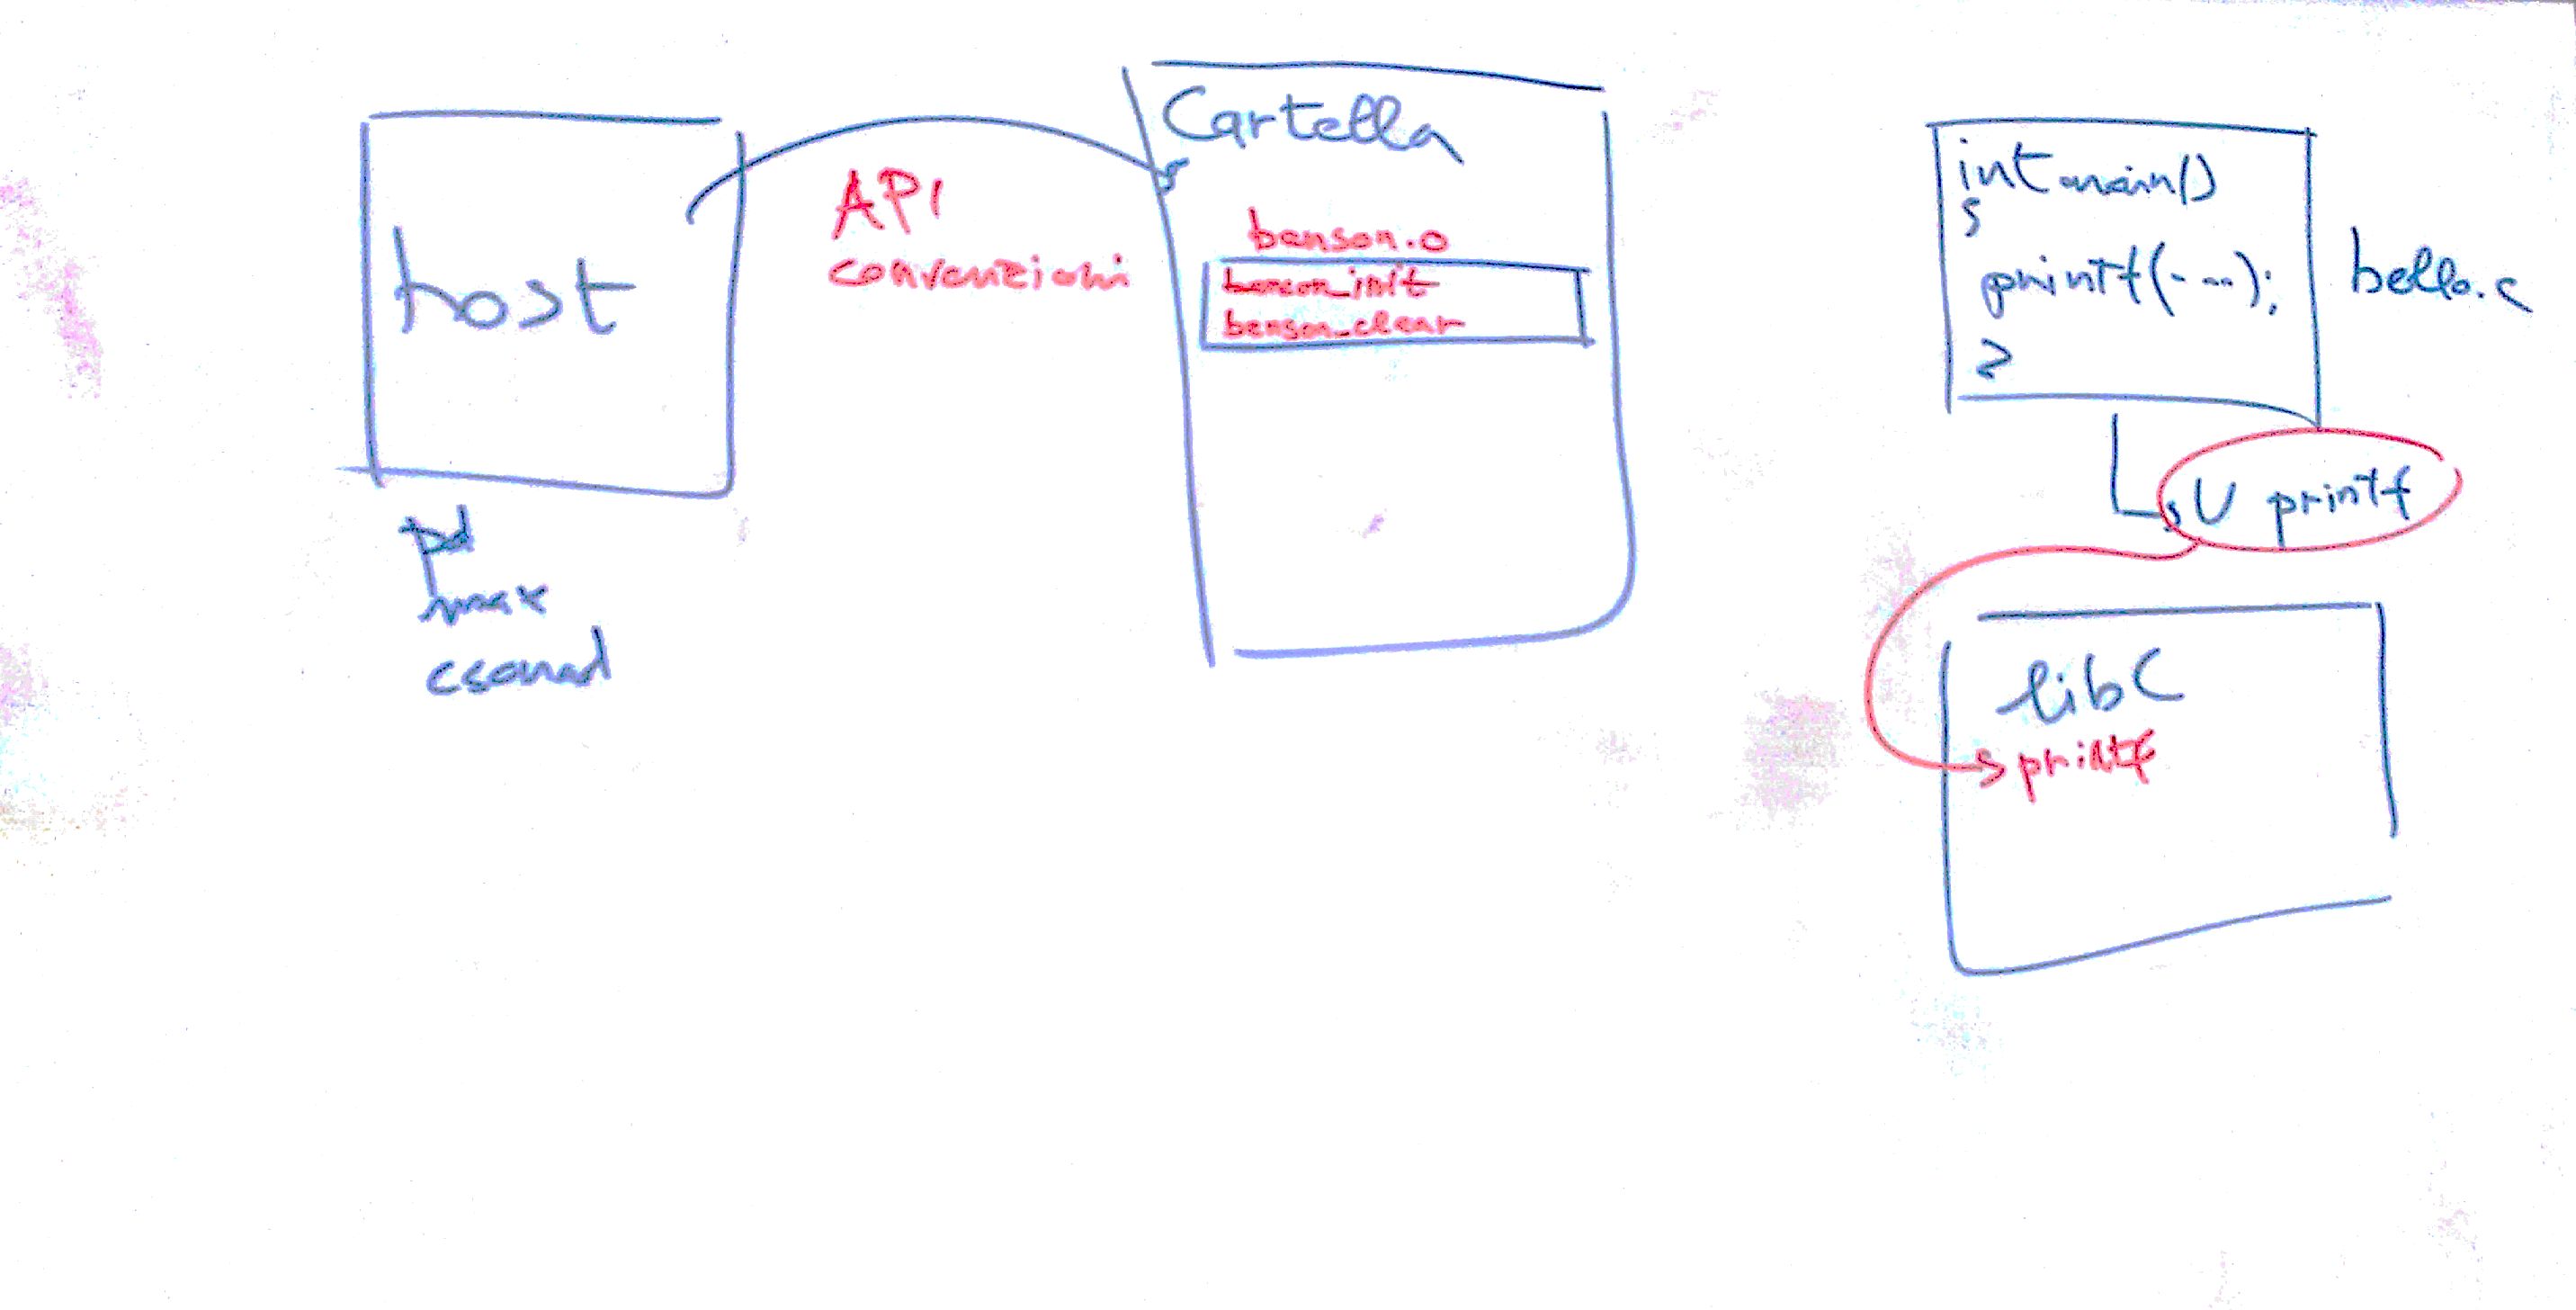 host
pd
max
csound
API
convenzioni
Cartella
benson.o
benson_init
benson_clear
int main()
{
printf(---);
}
bello.c
U printf
libC
printf